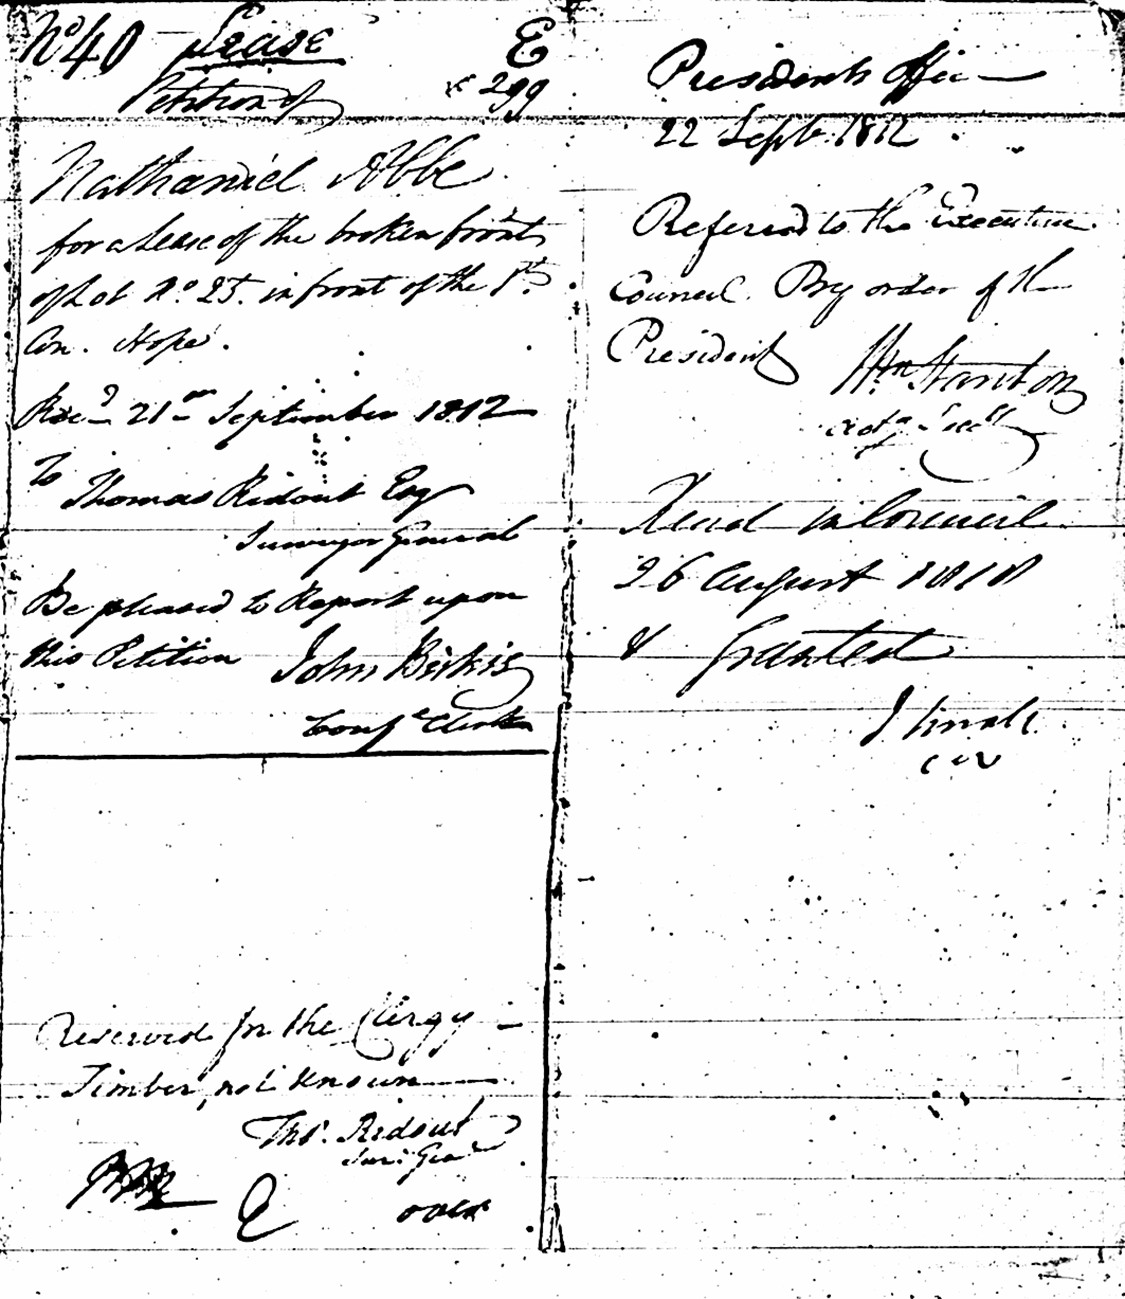 No 40 Lease E
Petition of 299
Nathaniel Abbe
for a Lease of the broken front
of Lot No. 25. in front of the 1st
Con. Hope.
Recd 21st September 1812
To Thomas Ridout Esqr
Surveyor General
Be pleased to Report upon
this Petition John Beikie
Conf. Clerk
Reserved for the Clergy —
Timber, not known
Thos. Ridout
Sur: Genl
over
Presidents Office
22 Septr. 1812
Referred to the Executive
Council. By order of the
President
Wm Stanton
Actg Secy
Read in Council
26 August 1818
& Granted
J Small